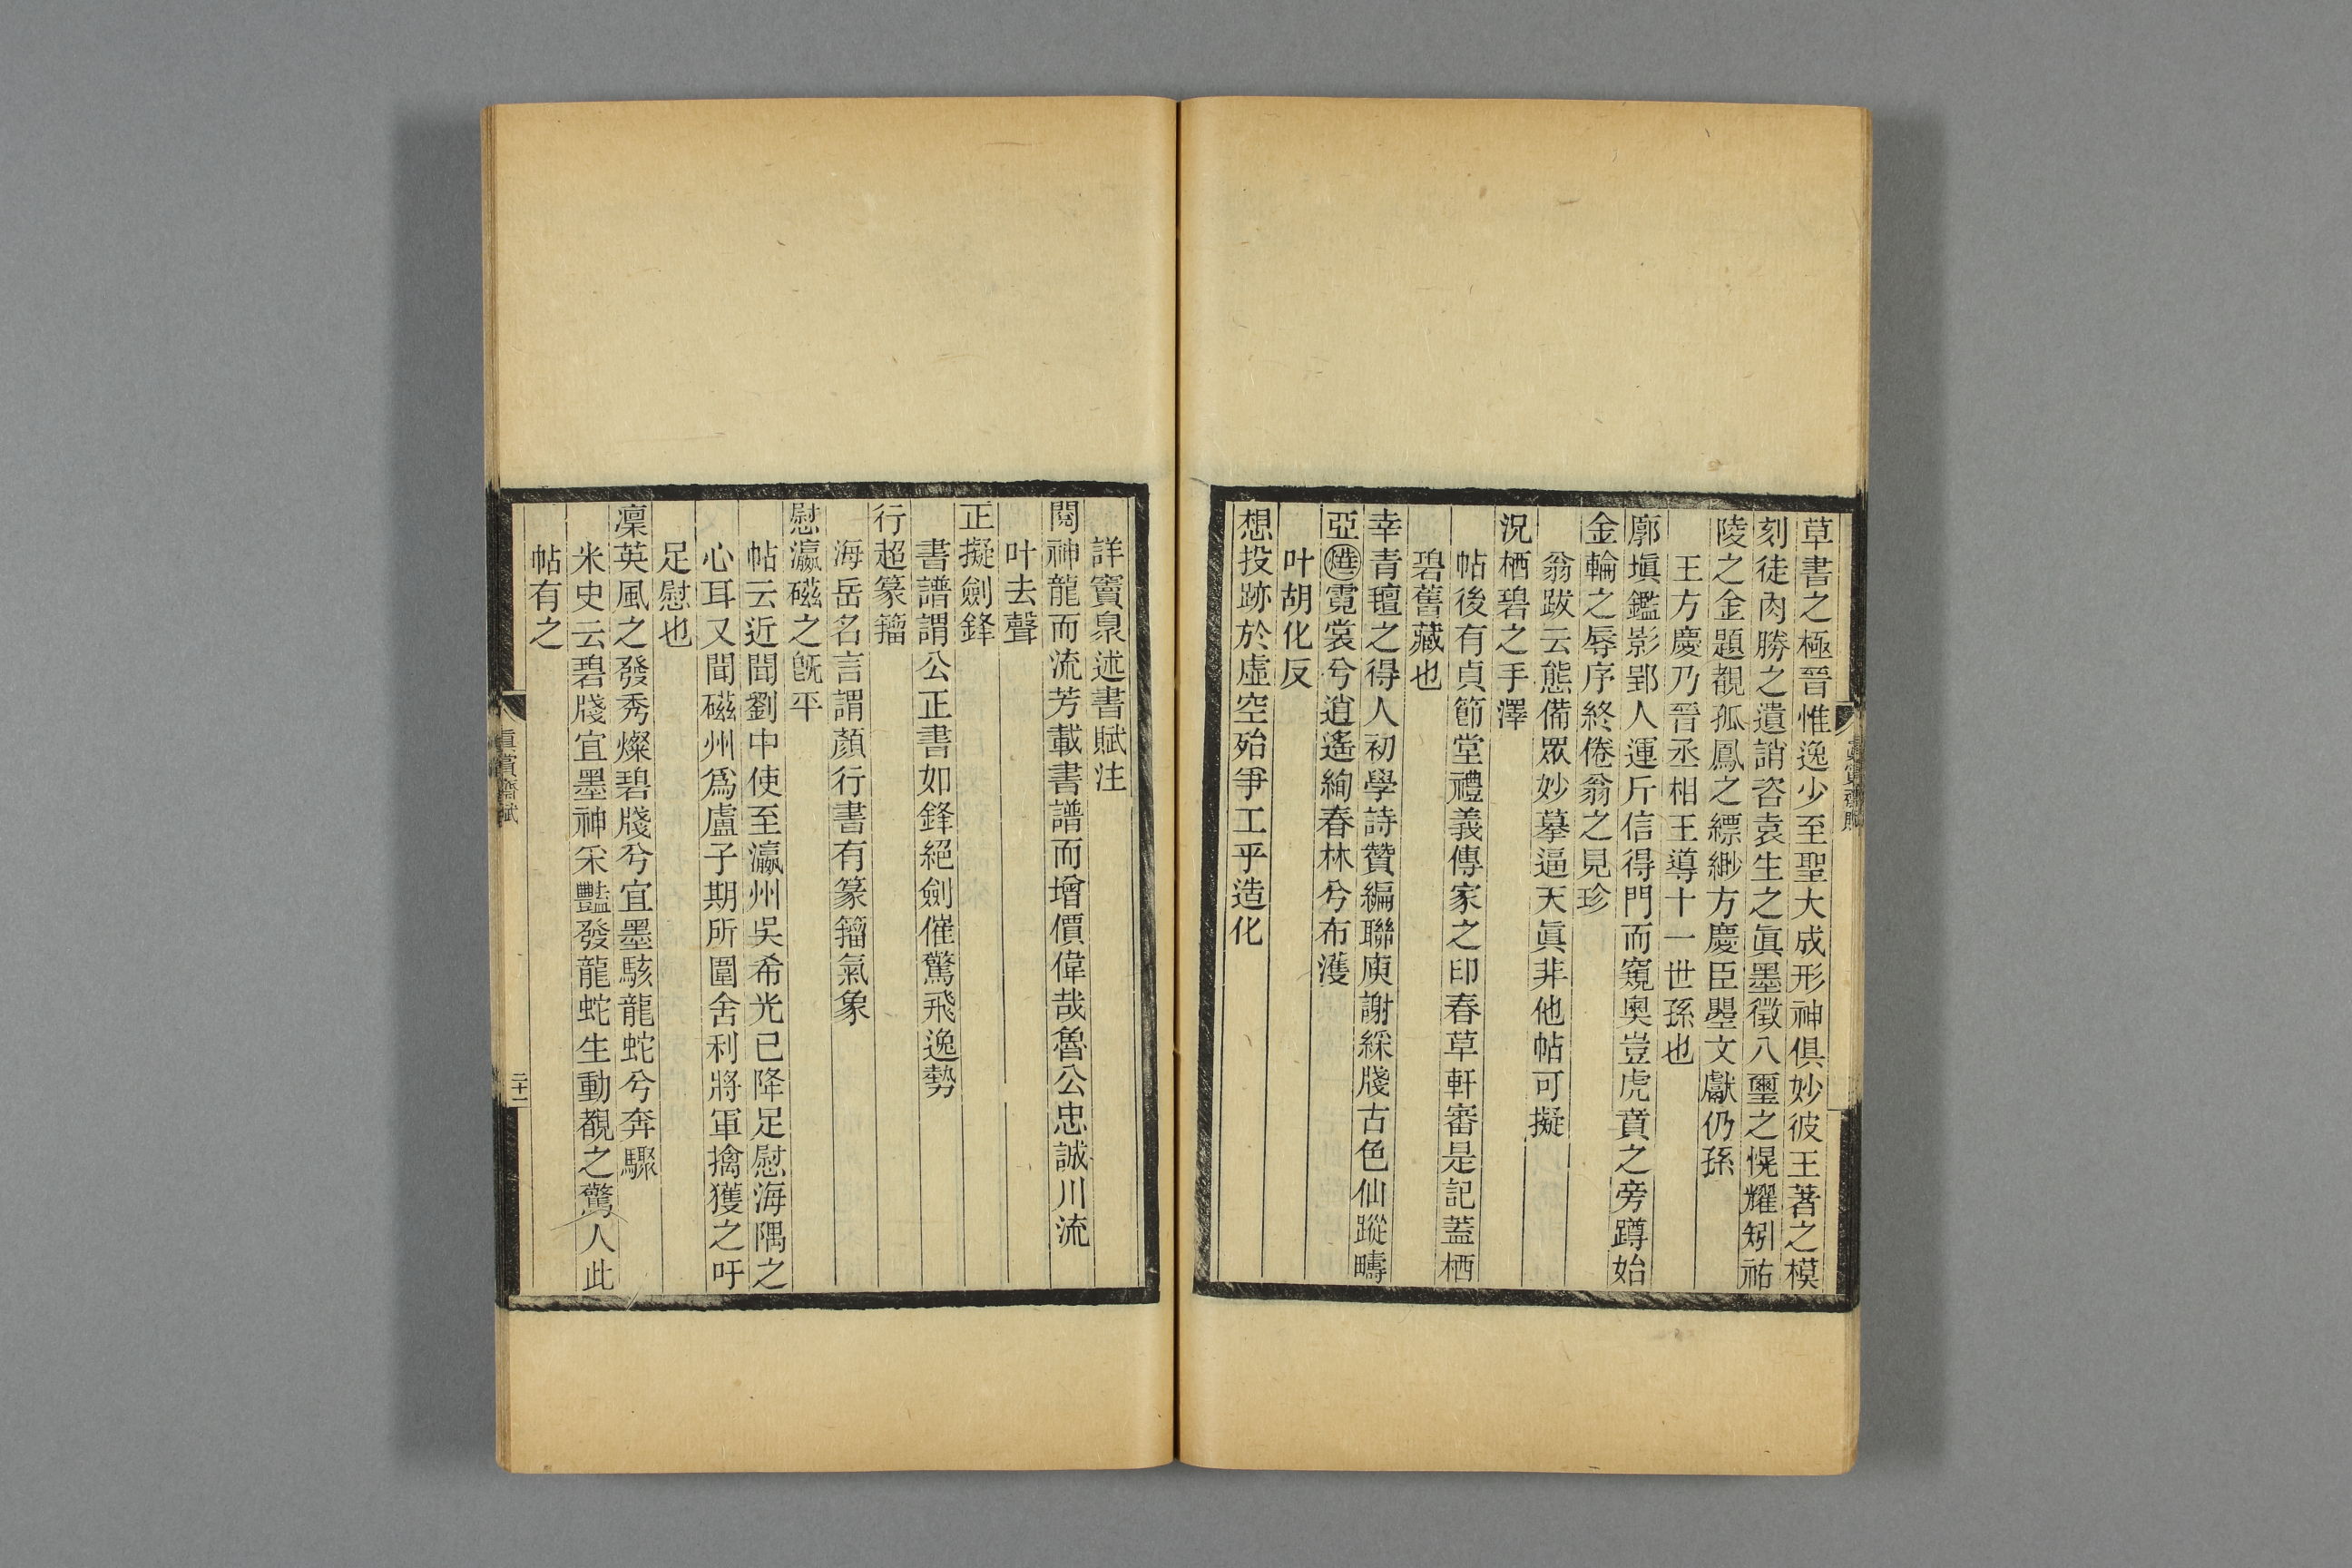 草書之極晉惟逸少至聖大成形神俱妙彼王著之模
刻徒肉勝之遺誚咨袁生之眞墨徵八璽之幌耀矧祐
陵之金題覩孤鳳之縹緲方慶臣曌文獻仍孫
王方慶乃晉丞相王導十一世孫也
廓塡鑑影郢人運斤信得門而窺奧豈虎賁之旁蹲始
金輪之辱序終倦翁之見珍
翁跋云態備眾妙摹逼天眞非他帖可擬
況栖碧之手澤
帖後有貞節堂禮義傳家之印春草軒審是記蓋栖
碧舊藏也
幸青壇之得人初學詩贊編聯庾謝綵牋古色仙蹤疇
亞霓裳兮逍遙絢春林兮布濩
叶胡化反
想投跡於虛空殆爭工乎造化
眞賞齋賦
詳竇臮述書賦注
閱神龍而流芳載書譜而增價偉哉魯公忠誠川流
叶去聲
正擬劍鋒
書譜謂公正書如鋒絕劍催驚飛逸勢
行超篆籀
海岳名言謂顏行書有篆籀氣象
慰瀛磁之旣平
帖云近聞劉中使至瀛州吳希光已降足慰海隅之
心耳又聞磁州爲盧子期所圍舍利將軍擒獲之吁
足慰也
凜英風之發秀燦碧牋兮宜墨駭龍蛇兮奔驟
米史云碧牋宜墨神采豔發龍蛇生動覩之驚人此
帖有之
眞賞齋賦
二十二